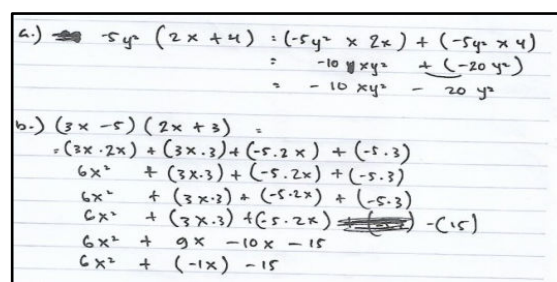 a.) -5y² (2x + 4) = (-5y² x 2x) + (-5y² x 4)
= -10 xy² + (-20 y²)
= - 10 xy² - 20 y²
b.) (3x - 5) (2x + 3) =
= (3x . 2x) + (3x . 3) + (-5 . 2x) + (-5 . 3)
6x² + (3x . 3) + (-5 . 2x) + (-5 . 3)
6x² + (3x . 3) + (-5 . 2x) + (-5 . 3)
6x² + (3x . 3) + (-5 . 2x) - (15)
6x² + 9x - 10x - 15
6x² + (-1x) - 15